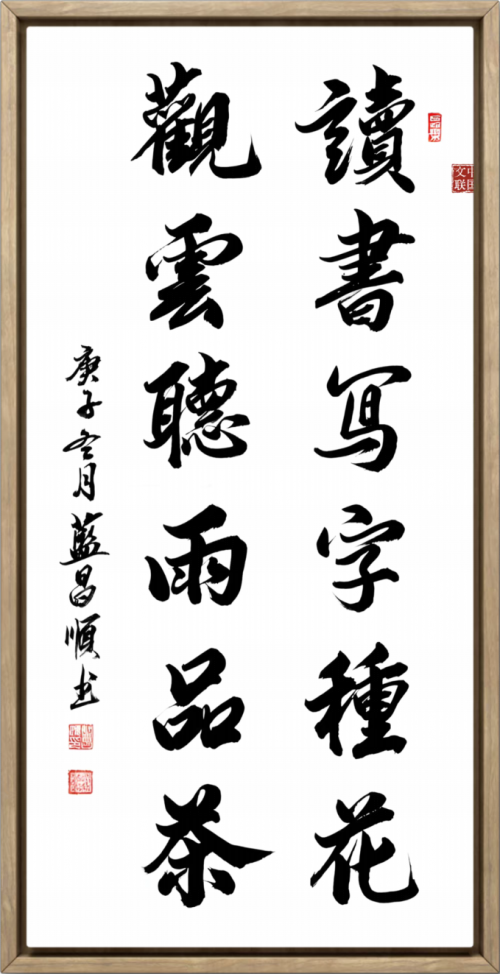 讀書写字種花
觀雲聽雨品茶
庚子冬月藍昌順书
中国文联